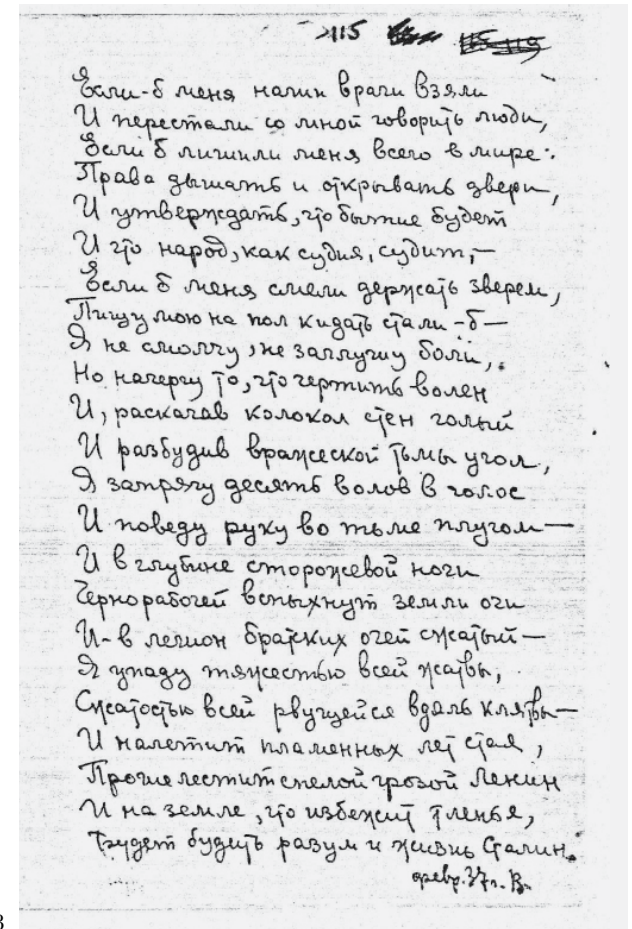 115 115-119
Если-б меня наши враги взяли
И перестали со мной говорить люди,
Если б лишили меня всего в мире:
Права дышать и открывать двери,
И утверждать, что бытие будет
И что народ, как судия, судит, —
Если б меня смели держать зверем,
Пищу мою на пол кидать стали-б —
Я не смолчу, не заглушу боли,
Но начерчу то, что чертить волен
И, раскачав колокол стен голый
И разбудив вражеской тьмы угол,
Я запрягу десять волов в голос
И поведу руку во тьме плугом —
И в глубине сторожевой ночи
Чернорабочей вспыхнут земли очи
И - в легион братских очей сжатый —
Я упаду тяжестью всей жатвы,
Сжатостью всей рвущейся вдаль клятвы —
И налетит пламенных лет стая,
Прошелестит спелой грозой Ленин
И на земле, что избежит тленья,
Будет будить разум и жизнь Сталин.
февр. 37 г. В.
3